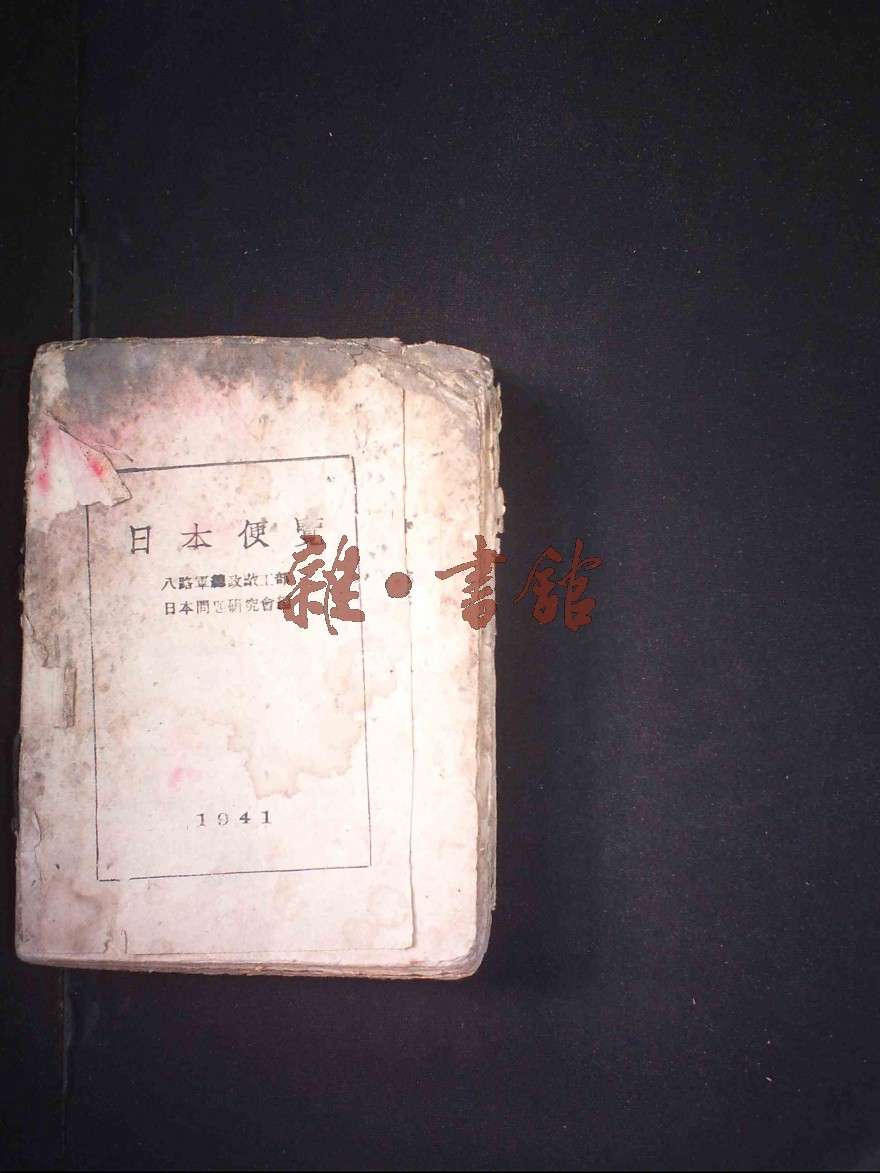 日本便覽
八路軍總政敵工部
日本問題研究會編
1941
雜·書館